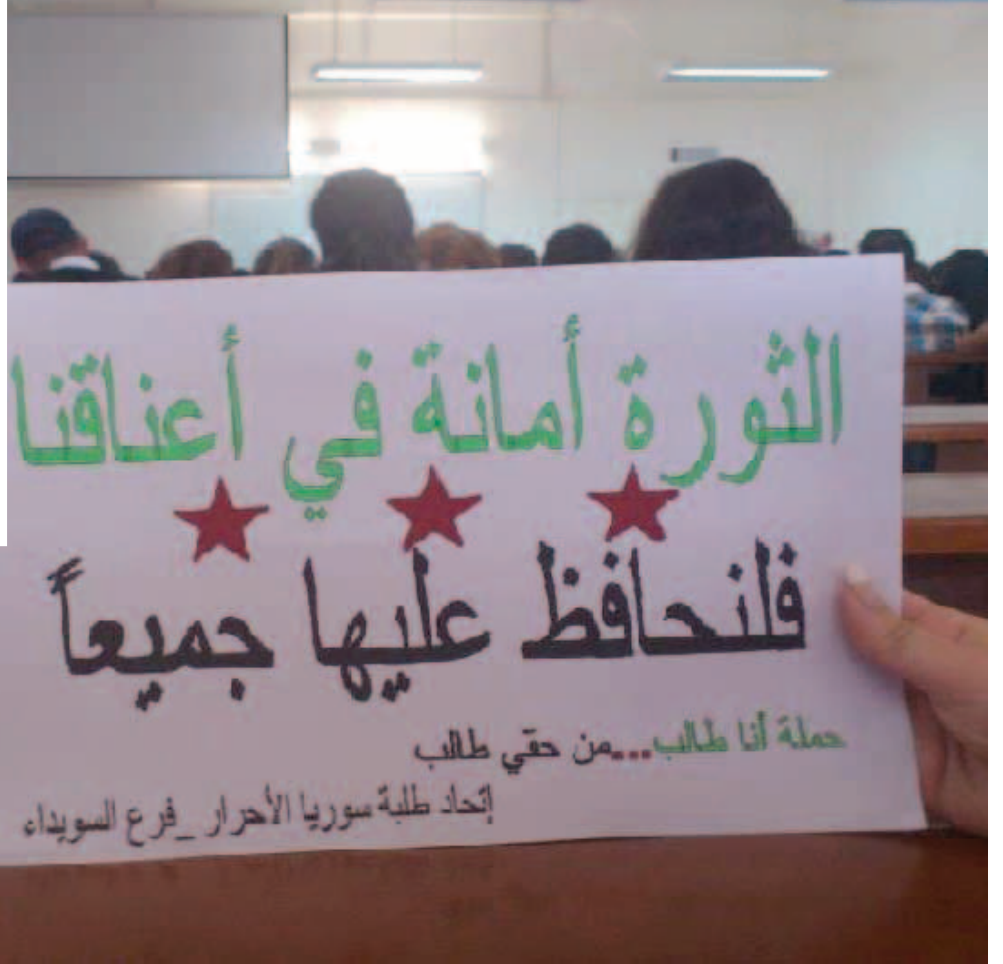 الثورة أمانة في أعناقنا
فلنحافظ عليها جميعاً
حملة أنا طالب...من حقي طالب
إتحاد طلبة سوريا الأحرار _فرع السويداء